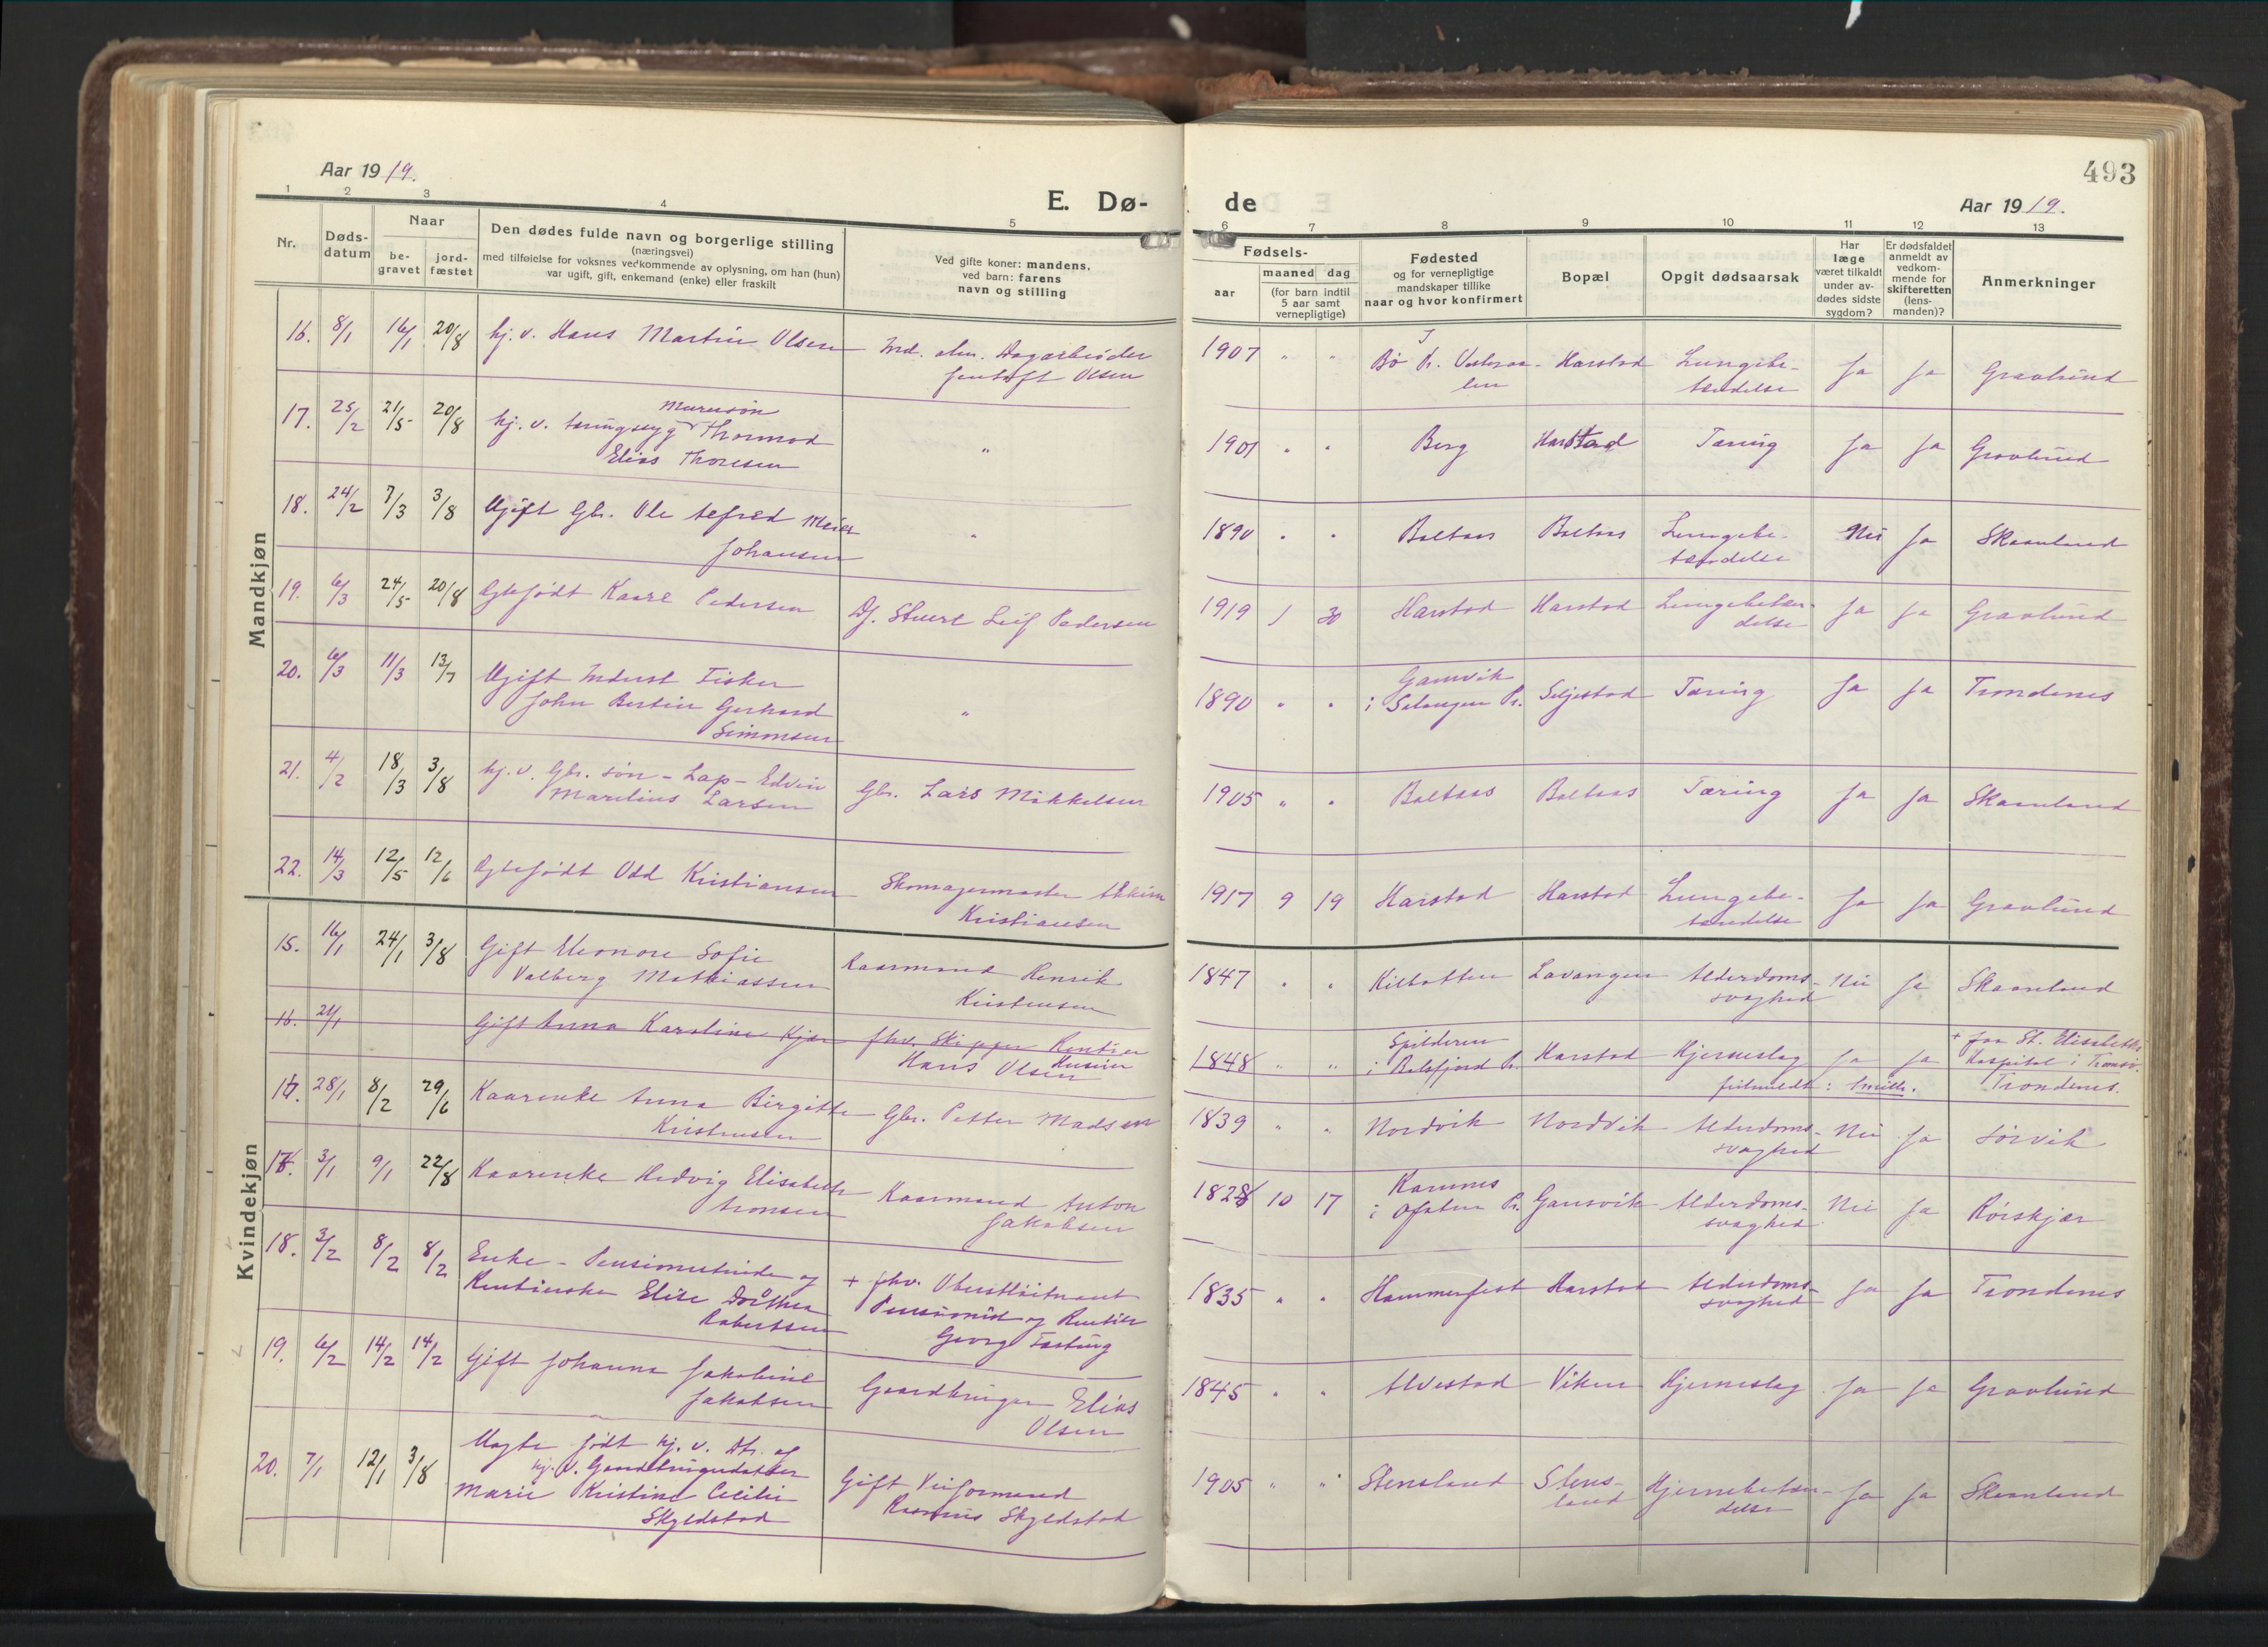 493
Aar 1919.
E. Dø-
de
Aar 1919.
1 2 3 4 5 6 7 8 9 10 11 12 13
Nr.
Døds-
datum
Naar
be-
gravet
jord-
fæstet
Den dødes fulde navn og borgerlige stilling
(næringsvei)
med tilføielse for voksnes vedkommende av oplysning, om han (hun)
var ugift, gift, enkemand (enke) eller fraskilt
Ved gifte koner: mandens,
ved barn: farens
navn og stilling
Fødsels-
aar
maaned dag
(for barn indtil
5 aar samt
vernepligtige)
Fødested
og for vernepligtige
mandskaper tillike
naar og hvor konfirmert
Bopæl
Opgit dødsaarsak
Har
læge
været tilkaldt
under av-
dødes sidste
sygdom?
Er dødsfaldet
anmeldt av
vedkom-
mende for
skifteretten
(lens-
manden)?
Anmerkninger
Mandkjøn
16. 8/1 16/1 20/8 hj. v. Hans Martin Olsen Ind. Dagarbeider
Olsen
1907 " " Bø Pr. Vesteraa-
len
Harstad Lungebe-
tændelse
Ja Ja Gravlund
17. 25/2 21/5 20/8 hj. v. tæringssyg Thormod
Elias Thoresen
"
1901 " " Berg Harstad Tæring Ja Ja Gravlund
18. 24/2 7/3 3/8 Ugift Gbr. Ole Alfred Meier
Johansen
"
1890 " " Boltaas Boltaas Lungebe-
tændelse
Nei Ja Skaanland
19. 6/3 24/5 20/8 Egtefødt Kaare Pedersen Df. Stuert Leif Pedersen
1919 1 30 Harstad Harstad Lungebetæn-
delse
Ja Ja Gravlund
20. 6/3 11/3 13/7 Ugift Inderst Fisker
John Bertin Gerhard
Simonsen
"
1890 " " Gamvik
i Salangen Pr.
Seljestad Tæring Ja Ja Trondenes
21. 4/2 18/3 3/8 hj. v. Gbr. søn - Lap - Edvin
Marelius Larsen
Gbr. Lars Mikkelsen
1905 " " Boltaas Boltaas Tæring Ja Ja Skaanland
22. 14/3 12/5 12/6 Egtefødt Odd Kristiansen Skomagermester
Kristiansen
1917 9 19 Harstad Harstad Lungebe-
tændelse
Ja Ja Gravlund
Kvindekjøn
15. 16/1 24/1 3/8 Gift Eleonore Sofie
Valberg Mathiassen
Kaarmand Henrik
Kristensen
1847 " " Kilbotten Lavangen Alderdoms-
svaghed
Nei Ja Skaanland
16. 21/1 Gift Anna Karoline Kjær fhv. Skipper Rentier
Hans Olsen
1848 " " i Balsfjord Pr. Harstad Hjerneslag Ja Ja + paa St. Elisabeths
Hospital i Tromsø.
Trondenes.
16. 28/1 8/2 29/6 Kaarenke Anna Birgitte
Kristensen
Gbr. Petter Madsen
1839 " " Nordvik Nordvik Alderdoms-
svaghed
Nei Ja Sørvik
17. 3/1 9/1 22/8 Kaarenke Hedvig Elisabeth
Aronsen
Kaarmand Anton
Jakobsen
1828 10 17 i Ofoten Pr. Gansvik Alderdoms-
svaghed
Nei Ja Rørskjær
18. 3/2 8/2 8/2 Enke - og
Elise Dorthea
Robertsen
+ fhv. Oberstløitnant
Pensionist og Rentier
Georg Fasting
1835 " " Hammerfest Harstad Alderdoms-
svaghed
Ja Ja Trondenes
19. 6/2 14/2 14/2 Gift Johanna Jakobine
Jakobsen
Gaardbruger Elias
Olsen
1845 " " Alvestad Viken Hjerneslag Ja Ja Gravlund
20. 7/1 12/1 3/8 Uegte født hj. v. Dtr. af
hj. v. Gaardbrugerdatter
Marie Kristine Cecilie
Skjeldstad
Gift Veiformand
Rasmus Skjeldstad
1905 " " Stensland Stens-
land
Hjernebetæn-
delse
Ja Ja Skaanland